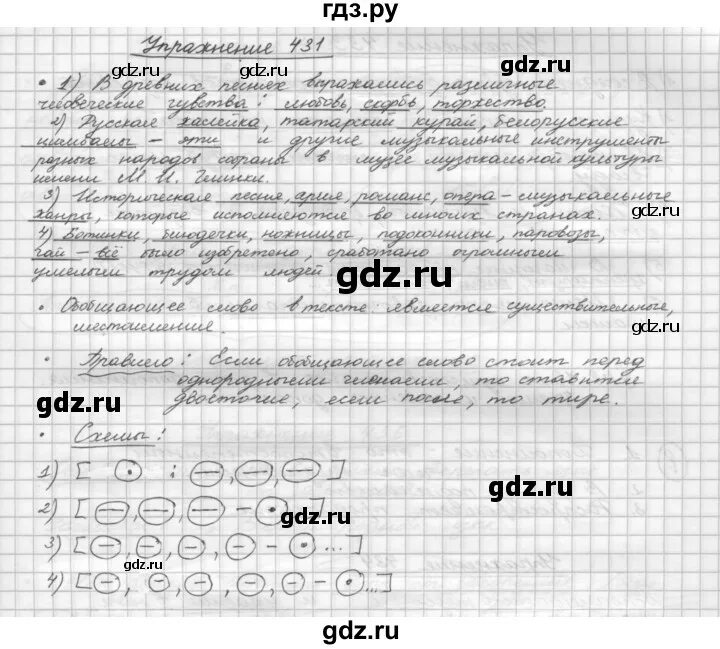 гдз.ру
Упражнение 431
• 1) В древних песнях выражались различные
человеческие чувства: любовь, скорбь, торжество.
2) Русская жалейка, татарский курай, белорусские
цимбалы – эти и другие музыкальные инструменты
разных народов собраны в музее музыкальной культуры
имени М. И. Глинки.
3) Историческая песня, ария, романс, опера – музыкальные
жанры, которые исполняются во многих странах.
4) Ботинки, блюдечки, ножницы, подоконники, паровозы,
чай – всё было изобретено, сработано огромным
умелым трудом людей.
• Обобщающее слово в тексте является существительные,
местоимение.
• Правило: Если обобщающее слово стоит перед
однородными членами, то ставится
двоеточие, если после, то тире.
• Схемы:
1) [ : , , ]
2) [ , , – ]
3) [ , , , – ...]
4) [ , , , , , – ...]
gdz.ru
gdz.ru
gdz.ru
gdz.ru
gdz.ru
gdz.ru
gdz.ru
gdz.ru
gdz.ru
gdz.ru
gdz.ru
gdz.ru
gdz.ru